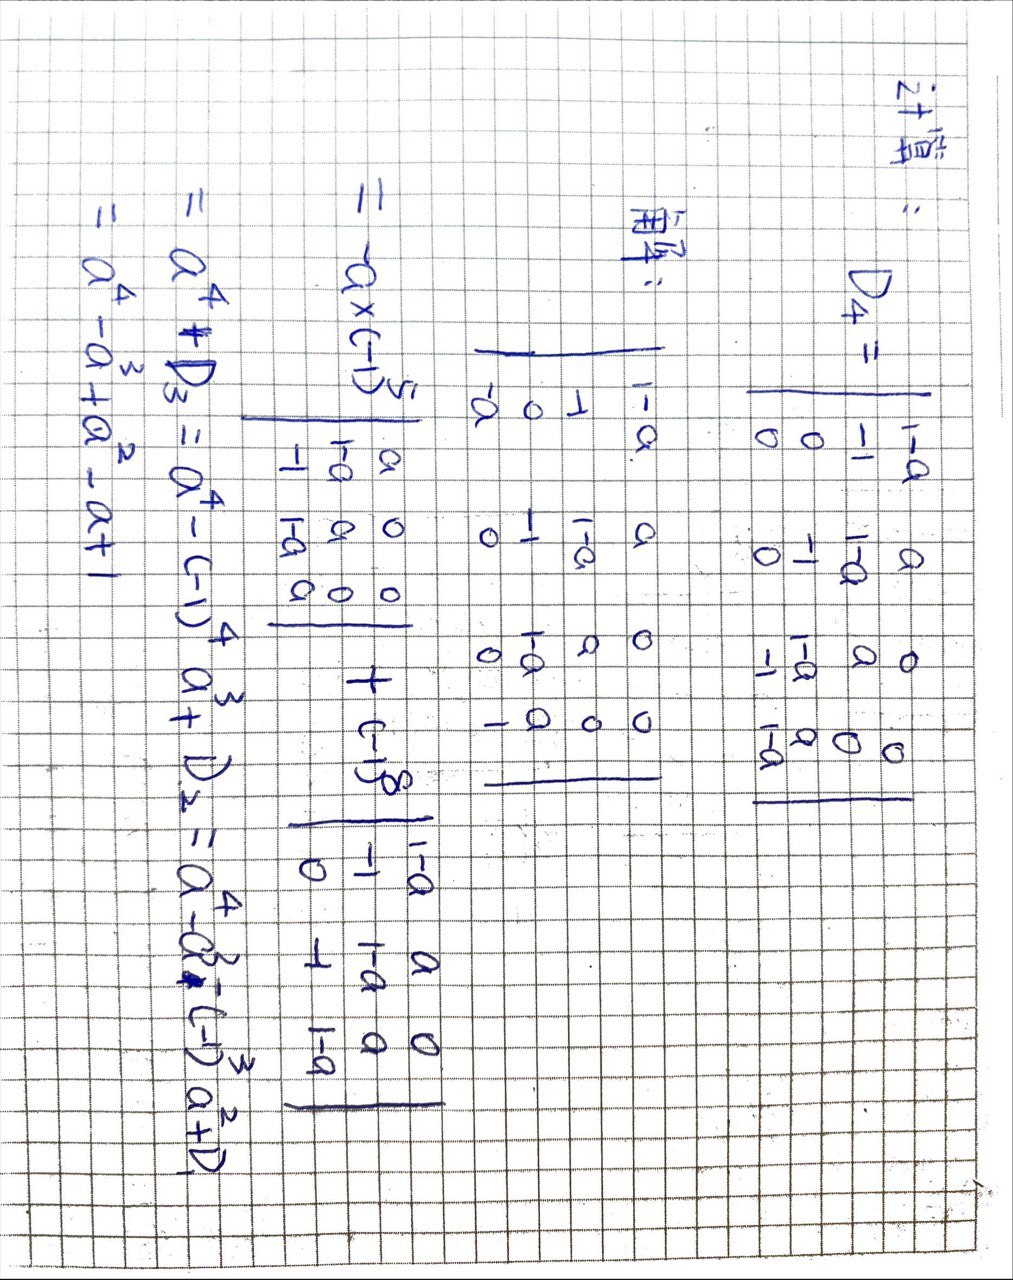 计算：
D₄ = | 1-a a 0 0 |
| -1 1-a a 0 |
| 0 -1 1-a a |
| 0 0 -1 1-a |
解：| 1-a a 0 0 |
| -1 1-a a 0 |
| 0 -1 1-a a |
| -a 0 0 1 |
= -a×(-1)⁵ | a 0 0 | + (-1)⁸ | 1-a a 0 |
| 1-a a 0 | | -1 1-a a |
| -1 1-a a | | 0 -1 1-a |
= a⁴ + D₃ = a⁴ - (-1)⁴ a³ + D₂ = a⁴ - a³ - (-1)³ a² + D₁
= a⁴ - a³ + a² - a + 1